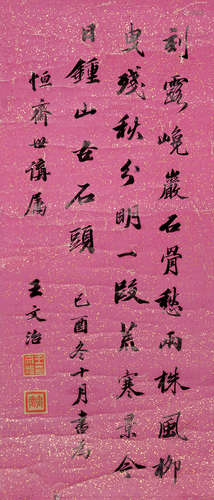 刻露巉巖石骨愁兩株風柳
曳殘秋分明一段荒寒景今
日鍾山古石頭
己酉冬十月書為
恒齋世講屬
王文治